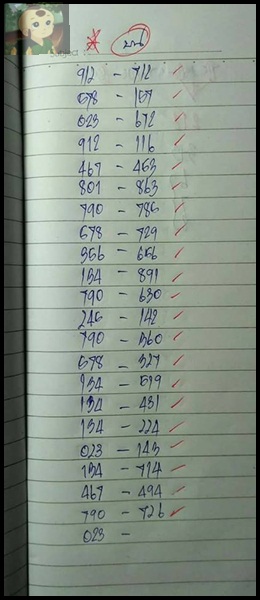 Subject
912 - 712 ✓
078 - 107 ✓
023 - 672 ✓
912 - 116 ✓
467 - 463 ✓
801 - 863 ✓
790 - 786 ✓
678 - 729 ✓
356 - 666 ✓
134 - 891 ✓
790 - 630 ✓
246 - 142 ✓
790 - 360 ✓
678 - 327 ✓
134 - 519 ✓
134 - 481 ✓
134 - 224 ✓
023 - 143 ✓
134 - 714 ✓
467 - 494 ✓
790 - 726 ✓
023 -